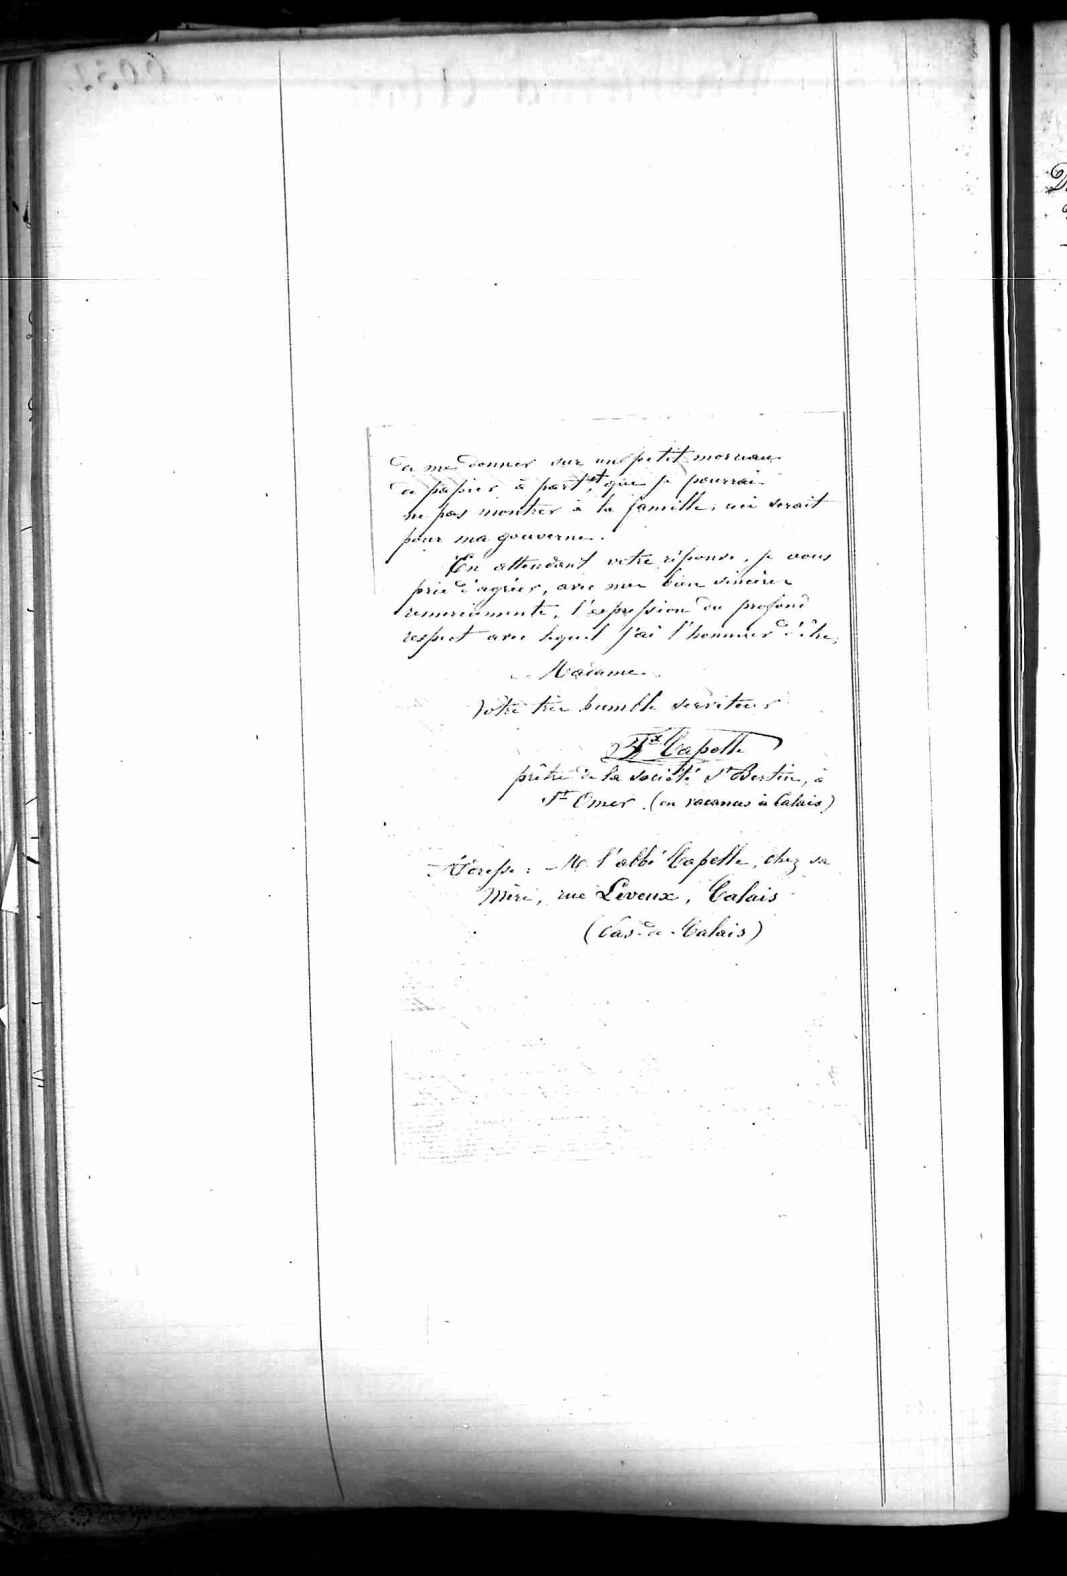 de me donner sur un petit morceau
de papier à part, et que je pourrai
ne pas montrer à la famille, ceci serait
pour ma gouverne.
En attendant votre réponse, je vous
prie d'agréer, avec mes bien sincères
remerciements, l'expression du profond
respect avec lequel j'ai l'honneur d'être,
Madame
Votre très humble serviteur
Capelle
prêtre de la société St Bertin, à
St Omer. (en vacances à Calais)
Adresse : M. l'abbé Capelle, chez sa
Mère, rue Leveux, Calais
(Pas-de-Calais)